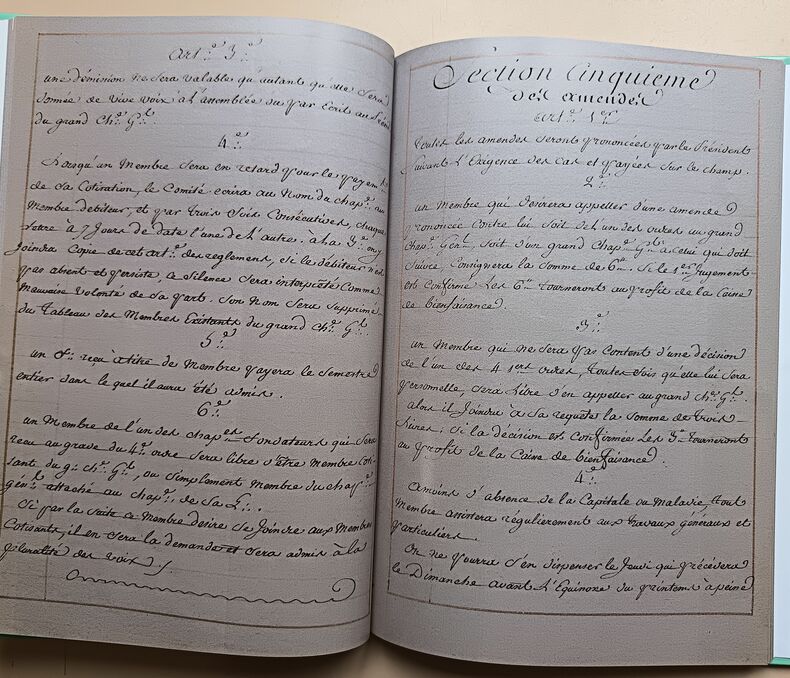 Art.e 3.e
une démission ne sera valable qu'autant qu'elle sera
donnée de vive voix à l'assemblée ou par Ecrit au
du grand Ch.e G.l
4.e
Lorsqu'un Membre sera en retard pour le payem.t
de sa Cotisation, le Comité ecrira au Nom du chap.e au
Membre débiteur, et par trois fois Consécutives, chaque
lettre à 7 Jours de date l'une de l'autre. à la 3.e on y
Joindra Copie de cet art.e des reglemens, si le débiteur n'est
pas absent et persiste, ce silence sera interpreté comme
mauvaise volonté de sa part. Son nom sera supprimé
du Tableau des Membres Existants du grand Ch.e G.l
5.e
un f.. reçu à titre de Membre payera le semestre
entier dans le quel il aura été admis.
6.e
un Membre de l'un des chap.es fondateurs qui sera
reçu au grade du 4.e ordre sera libre d'être membre Coti-
sant du g. ch.e G.l, ou simplement Membre du chap.e
gén.l attaché au chap.e de sa
Si par la suite ce Membre desire se Joindre aux Membres
Cotisants, il en sera la demande et sera admis à la
pluralité des voix
Section Cinquieme
des amendes
art.e 1.er
Toutes les amendes seront prononcées par le Président
suivant l'Exigence des cas et payées sur le champ.
2.e
un Membre qui desirera appeller d'une amende
prononcée contre lui soit de l'un des ordres au grand
Chap.e Gén.l soit d'un grand Chap.e G.l à celui qui doit
suivre, Consignera la somme de 6.lt Si le 1.er Jugement
est confirmé Les 6.lt tourneront au profit de la Caisse
de bienfaisance.
3.e
un Membre qui ne sera pas content d'une décision
de l'un des 4 1.ers ordres, toutes fois qu'elle lui sera
personnelle, sera Libre d'en appeller au grand Ch.e G.l
alors il Joindra à sa requete la somme de trois
livres; si la décision est confirmée Les 3.lt tourneront
au profit de la Caisse de bienfaisance.
4.e
amoins d'absence de la Capitale ou maladie, tout
Membre assistera régulierement aux travaux généraux et
particuliers.
On ne pourra s'en dispenser le Jeudi qui précédera
le Dimanche avant l'Equinoxe du printems à peine